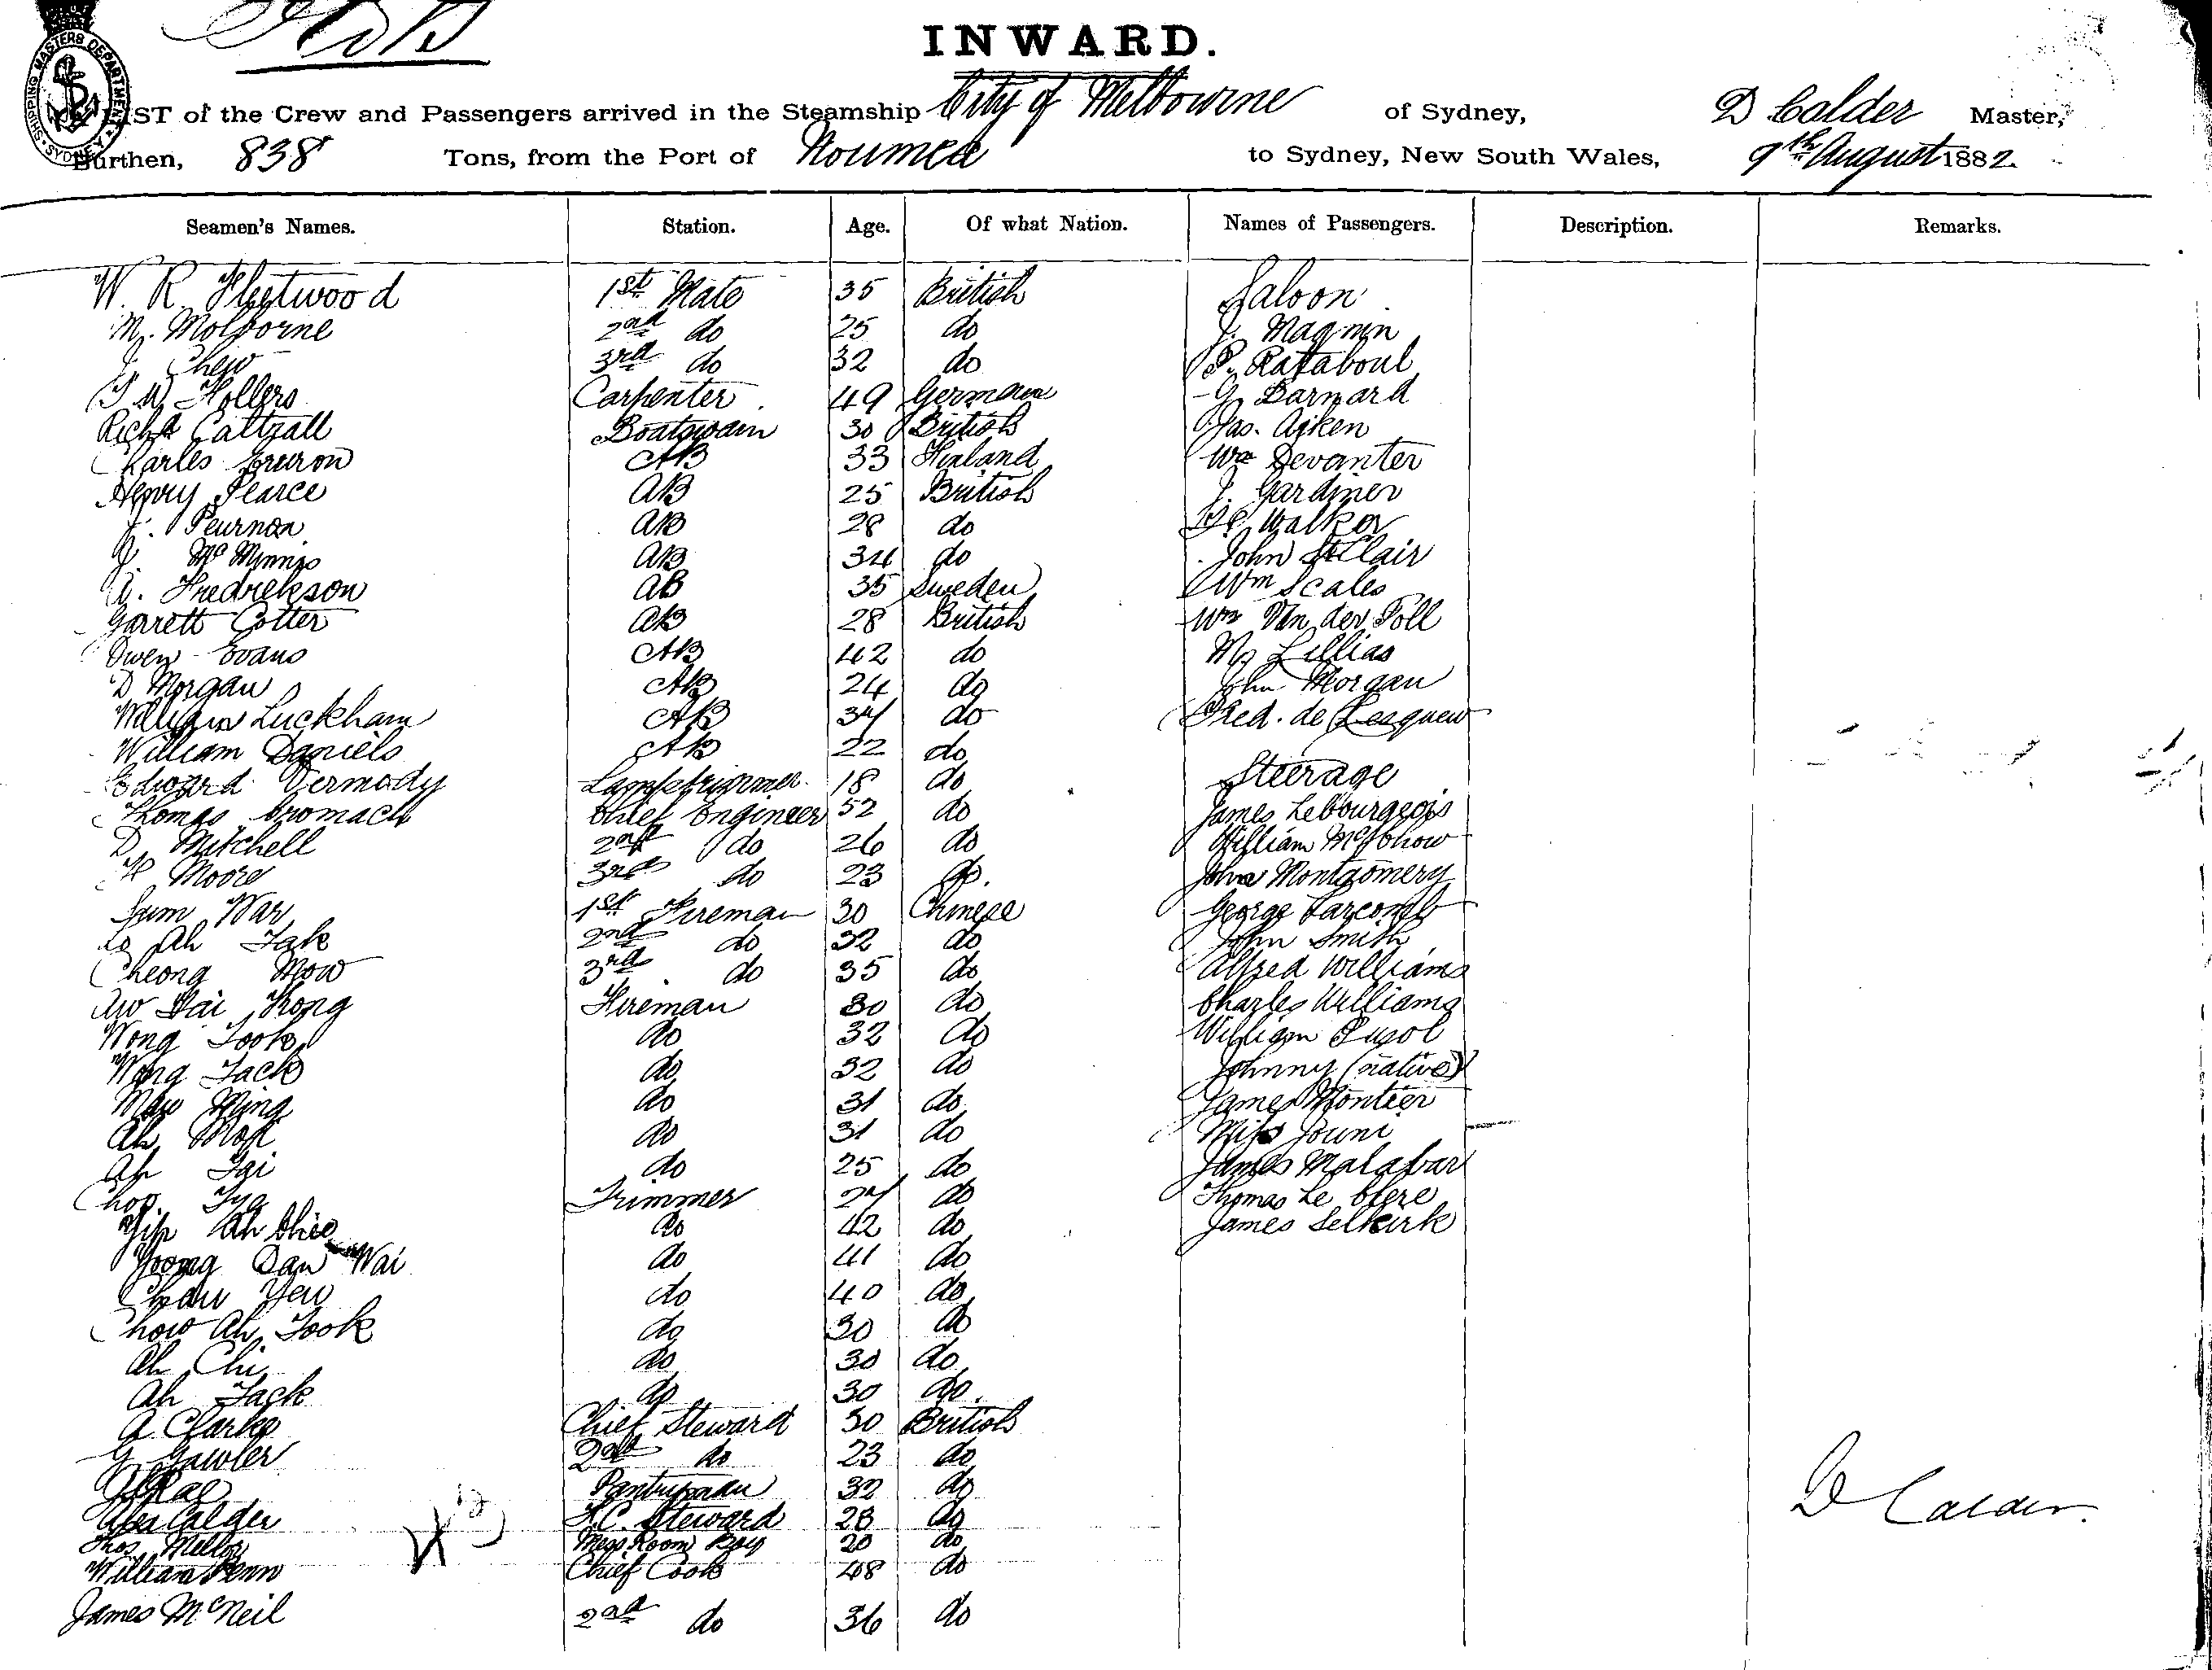 INWARD.
SHIPPING MASTERS DEPARTMENT SYDNEY
LIST of the Crew and Passengers arrived in the Steamship City of Melbourne of Sydney, D Calder Master,
Burthen, 838 Tons, from the Port of Noumea to Sydney, New South Wales, 9th August 1882
Seamen's Names. Station. Age. Of what Nation. Names of Passengers. Description. Remarks.
W. R. Fleetwood 1st Mate 35 British Saloon
M. Molborne 2nd do 25 do J. Magnin
J. Chew 3rd do 32 do P. Rataboul
J W Hollers Carpenter 49 German G. Barnard
Richd Cattrall Boatswain 30 British Jas. Aiken
Charles AB 33 Finland Wm Devanter
Henry Pearce AB 25 British J. Gardiner
J. Peurnon AB 28 do Walker
J. McMinnis AB 34 do John StClair
A. Fredrekson AB 35 Sweden Wm Scales
Garrett Cotter AB 28 British Wm Van der Poll
Owen Evans AB 42 do Mr Lillias
D Morgan AB 24 do John Morgan
William Luckham AB 34 do Fred. de Lesquew
William Daniels AB 22 do
Edward Dermody Lamptrimmer 18 do Steerage
Thomas Cromach Chief Engineer 52 do James Lebourgeois
D. Mitchell 2nd do 26 do William
H Moore 3rd do 23 do. John Montgomery
Sum War 1st Fireman 30 Chinese George Larcomb
Lo Ah Tak 2nd do 32 do John Smith
Cheong Mow 3rd do 35 do Alfred Williams
Aw Tai Kong Fireman 30 do Charles Williams
Wong Took do 32 do William Pujol
Wong Jack do 32 do Johnny (native)
Maw Hing do 31 do James Montier
Ah Mok do 31 do Miss Jouni
Ah Tai do 25 do James Malabar
Chop Tya Trimmer 27 do Thomas Le Clere
Yip Ah Shie do 42 do James Selkirk
Yoong Dan Wai do 41 do
Chaw Yew do 40 do
Chow Ah Took do 30 do
Ah Chi do 30 do
Ah Jack do 30 do.
A Clarke Chief Steward 30 British
G Gawler 2nd do 23 do
J Rae Pantryman 32 do
Alex Calder F.C. Steward 28 do
Thos Mellor Mess Room Boy 20 do
William Penn Chief Cook 48 do
James McNeil 2nd do 36 do
D Calder.